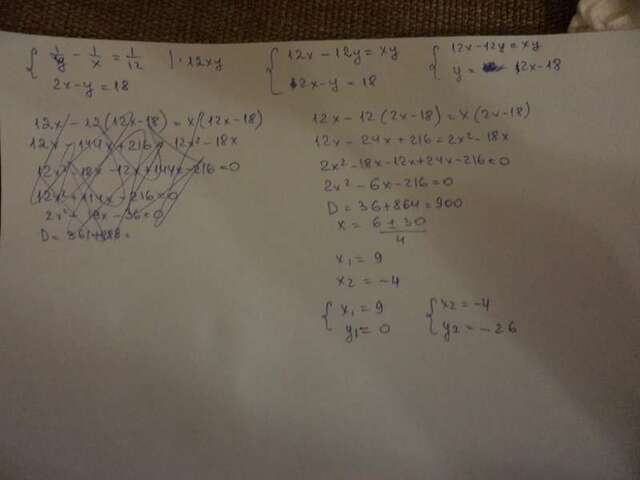 { 1/y - 1/x = 1/12 | · 12xy
2x - y = 18
{ 12x - 12y = xy
2x - y = 18
{ 12x - 12y = xy
y = 12x - 18
12x - 12(12x - 18) = x(12x - 18)
12x - 144x + 216 = 12x² - 18x
12x² - 18x - 12x + 144x - 216 = 0
12x² + 114x - 216 = 0
2x² + 19x - 36 = 0
D = 361 + 288 =
12x - 12(2x - 18) = x(2x - 18)
12x - 24x + 216 = 2x² - 18x
2x² - 18x - 12x + 24x - 216 = 0
2x² - 6x - 216 = 0
D = 36 + 864 = 900
x = 6 ± 30
4
x₁ = 9
x₂ = -4
{ x₁ = 9
y₁ = 0
{ x₂ = -4
y₂ = -26